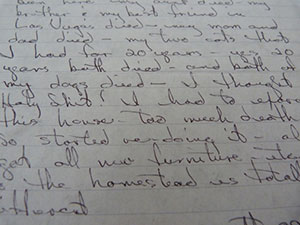 been very angel died - my
brother + my best friend in
Las Vegas died - my mom and
dad died - my two cats that
I had for 20 years - yes 20
years both died - and both of
my dogs died - I thought
Holy Shit! I had to
this house - too much death
so started re-doing it - al
got all new furniture, etc
so the homestead is totally
different